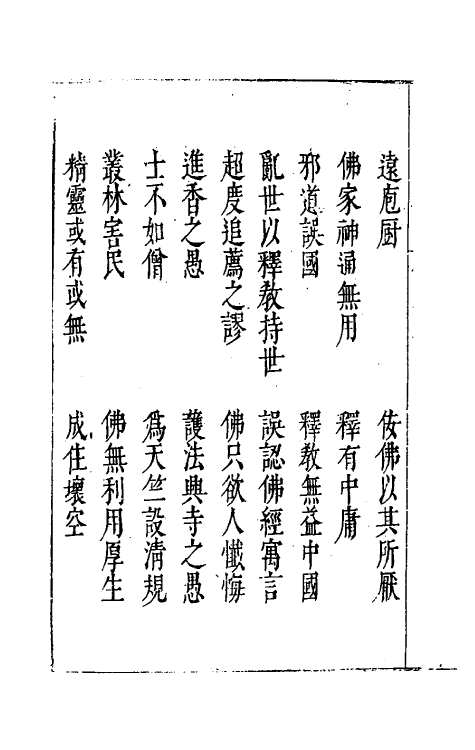 遠庖厨　佞佛以其所厭
佛家神通無用　釋有中庸
邪道誤國　釋教無益中國
亂世以釋教持世　誤認佛經寓言
超度追薦之謬　佛只欲人懺悔
進香之愚　護法興寺之愚
士不如僧　為天竺設清規
叢林害民　佛無利用厚生
精靈或有或無　成住壞空